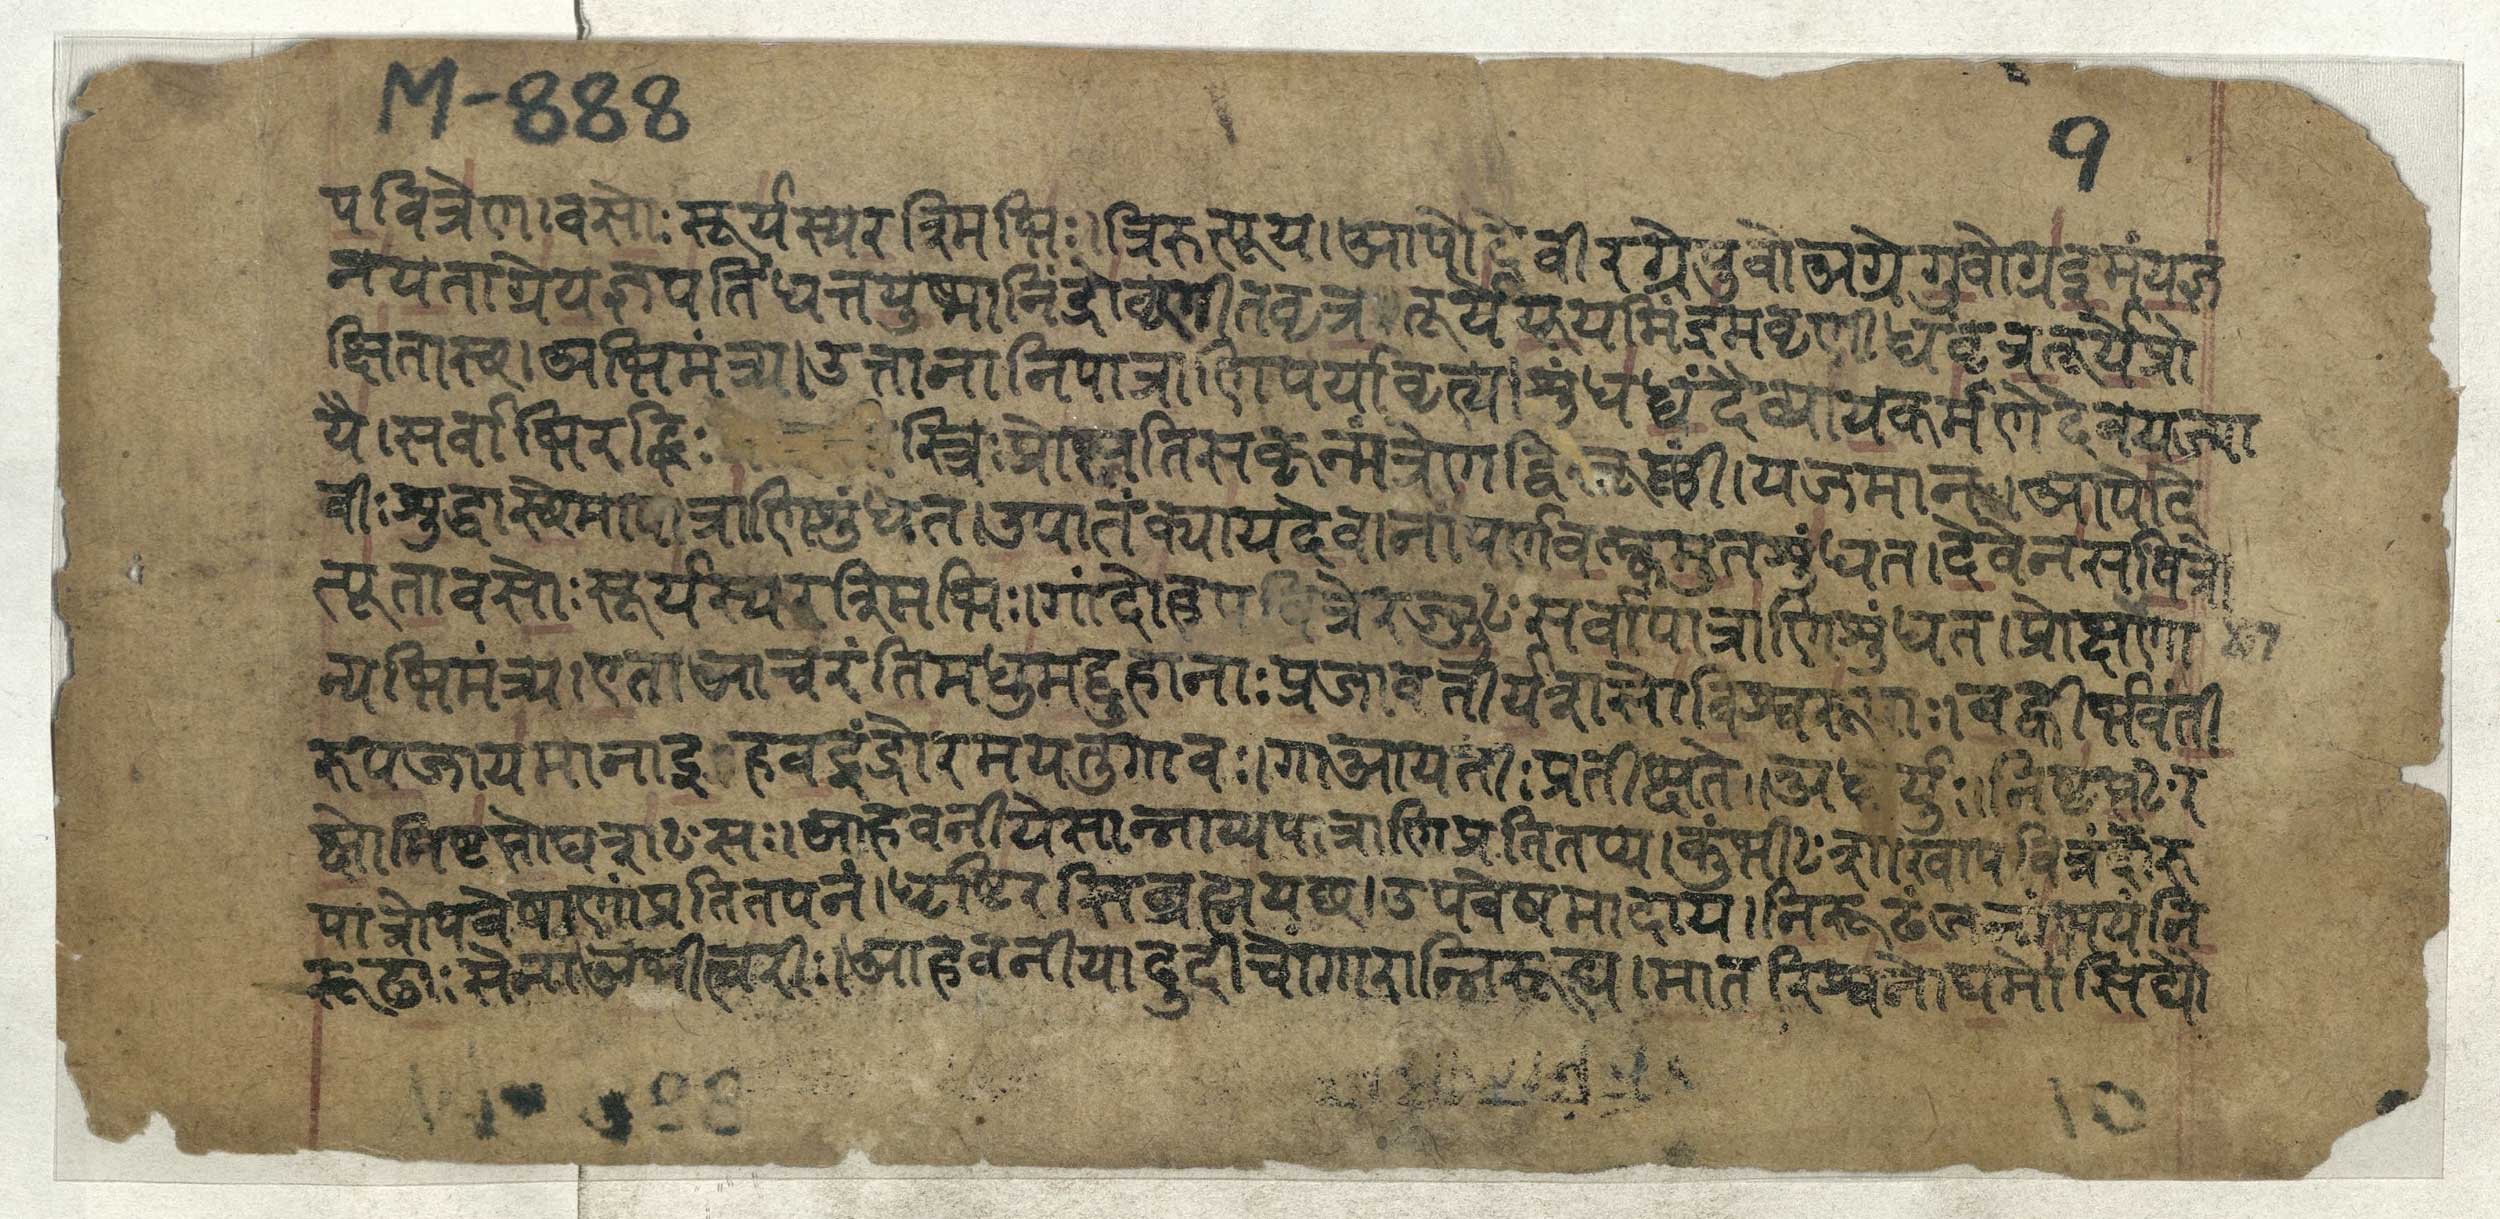 M-888
१
पवित्रेण।वसोः सूर्यस्यरश्मिभिः।त्रिरुत्पूय।आपोदेवीरग्रेपुवोअग्रेगुवोग्रइमंयज्ञं
नयताग्रेयज्ञपतिंधत्तयुष्मानिंद्रोवृणीतवृत्रतूर्येयूयमिंद्रमवृणीध्वंवृत्रतूर्येप्रो
क्षितास्थ।अभिमंत्र्य।उत्तानानिपात्राणिपर्यावृत्य।शुंधध्वंदैव्यायकर्मणेदेवयज्या
यै।सर्वाभिरद्भिः स्त्रिः प्रोक्षतिसकृन्मंत्रेणद्विस्तूष्णीं।यजमानः।आपोदे
वीःशुद्धास्थेमापात्राणिशुंधत।उपातंक्यायदेवानांपर्णवल्कमुतशुंधत।देवेनसवित्रो
त्पूतावसोःसूर्यस्यरश्मिभिः।गांदोहपवित्रेरज्जुꣳसर्वापात्राणिशुंधत।प्रोक्षणी
न्यभिमंत्र्य।एताआचरंतिमधुमद्दुहानाःप्रजावतीर्यशसोविश्वरूपाः।बह्वीर्भवंती
रुपजायमानाइहवइंद्रोरमयतुगावः।गाआयतीःप्रतीक्षते।अध्वर्युः।निष्टप्तꣳर
क्षोनिष्टप्तोघशꣳसः।आहवनीयेसान्नाय्यपात्राणिप्रतितप्य।कुंभीꣳशाखापवित्रंदोह
पात्रोपवेषाणांप्रतितपनं।धृष्टिरसिब्रह्मयछ।उपवेषमादाय।निरूढंजन्यंभयंनि
रूढाःसेनाअभीत्वरीः।आहवनीयादुदीचोंगारान्निरूह्य।मातरिश्वनोघर्मोसिद्यौ
10